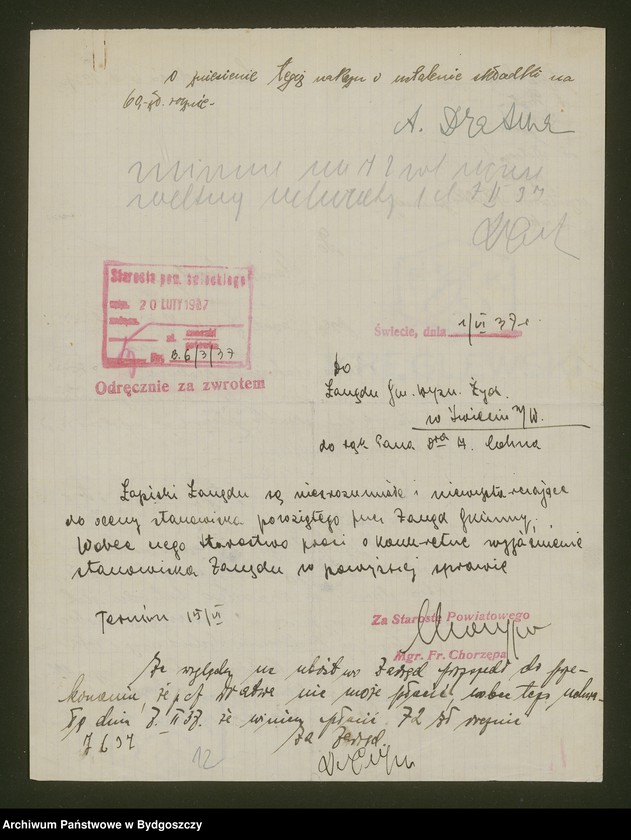 o zniesienie tegoż nakazu i ustalenie składki na
60,- zł. rocznie.
A. Dratwa
Starosta pow. świeckiego
20 LUTY 1937
zał.
Nr. B. 6/3/37
Odręcznie za zwrotem
Świecie, dnia 1/VI 37 r.
Do
Zarządu Gm. Wyzn. Żyd.
w Świeciu n/W.
do rąk Pana Dra H. Cohna
Zapiski Zarządu są niezrozumiałe i niewystarczające
do oceny stanowiska powziętego przez Zarząd Gminny.
Wobec tego Starostwo prosi o konkretne wyjaśnienie
stanowiska Zarządu w powyższej sprawie
Termin 15/VI
Za Starostę Powiatowego
Mgr. Fr. Chorzępa
Ze względu na Zarząd przyszedł do prze-
konania, że p. Dratwa nie może płacić wobec tego uchwa-
dnia 7.II 37. że winien płacić 72 zł rocznie
7 6 37
Za Zarząd
12
Archiwum Państwowe w Bydgoszczy